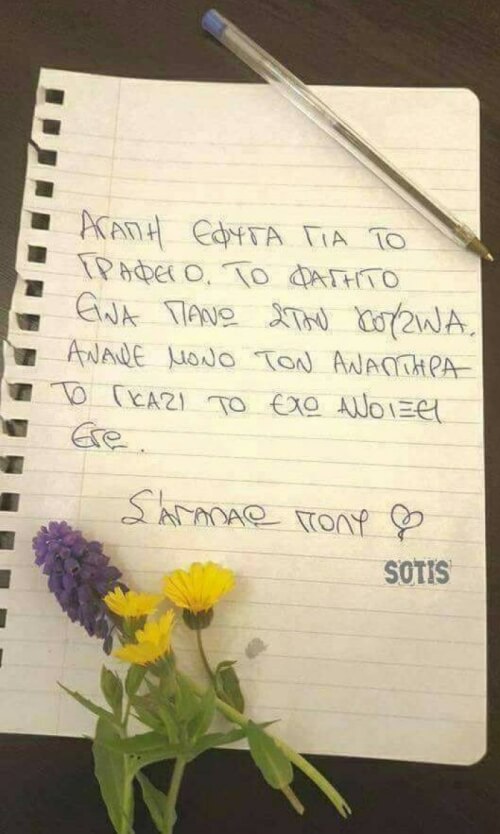 ΑΓΑΠΗ ΕΦΥΓΑ ΓΙΑ ΤΟ
ΓΡΑΦΕΙΟ. ΤΟ ΦΑΓΗΤΟ
ΕΙΝΑ ΠΑΝΩ ΣΤΗΝ ΚΟΥΖΙΝΑ.
ΑΝΑΨΕ ΜΟΝΟ ΤΟΝ ΑΝΑΠΤΗΡΑ
ΤΟ ΓΚΑΖΙ ΤΟ ΕΧΩ ΑΝΟΙΞΕΙ
ΕΓΩ.
Σ'ΑΓΑΠΑΩ ΠΟΛΥ
SOTIS